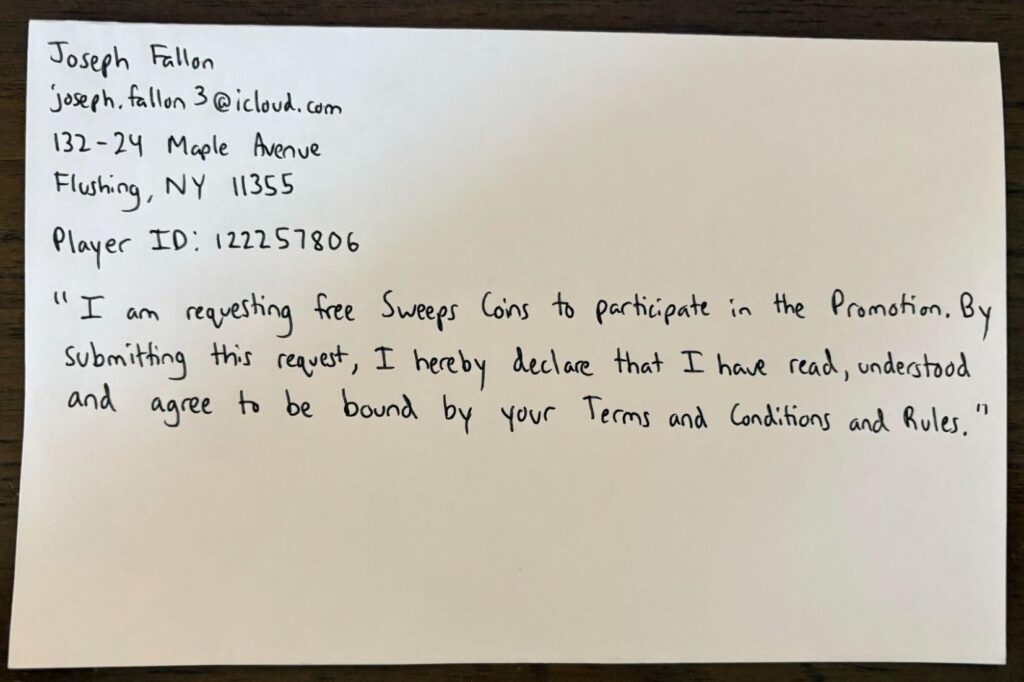 Joseph Fallon
joseph.fallon3@icloud.com
132-24 Maple Avenue
Flushing, NY 11355
Player ID: 122257806
"I am requesting free Sweeps Coins to participate in the Promotion. By
submitting this request, I hereby declare that I have read, understood
and agree to be bound by your Terms and Conditions and Rules."